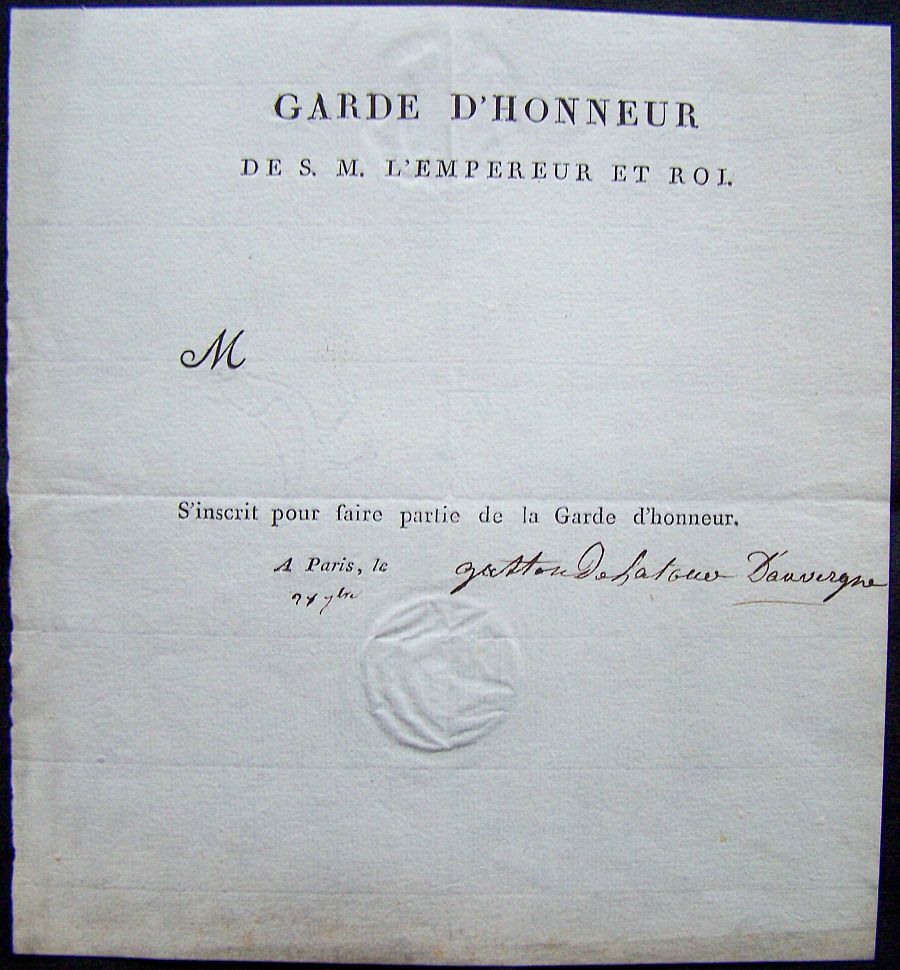 GARDE D'HONNEUR
DE S. M. L'EMPEREUR ET ROI.
M
S'inscrit pour faire partie de la Garde d'honneur.
A Paris, le
gaston De Latour D'auvergne
7bre